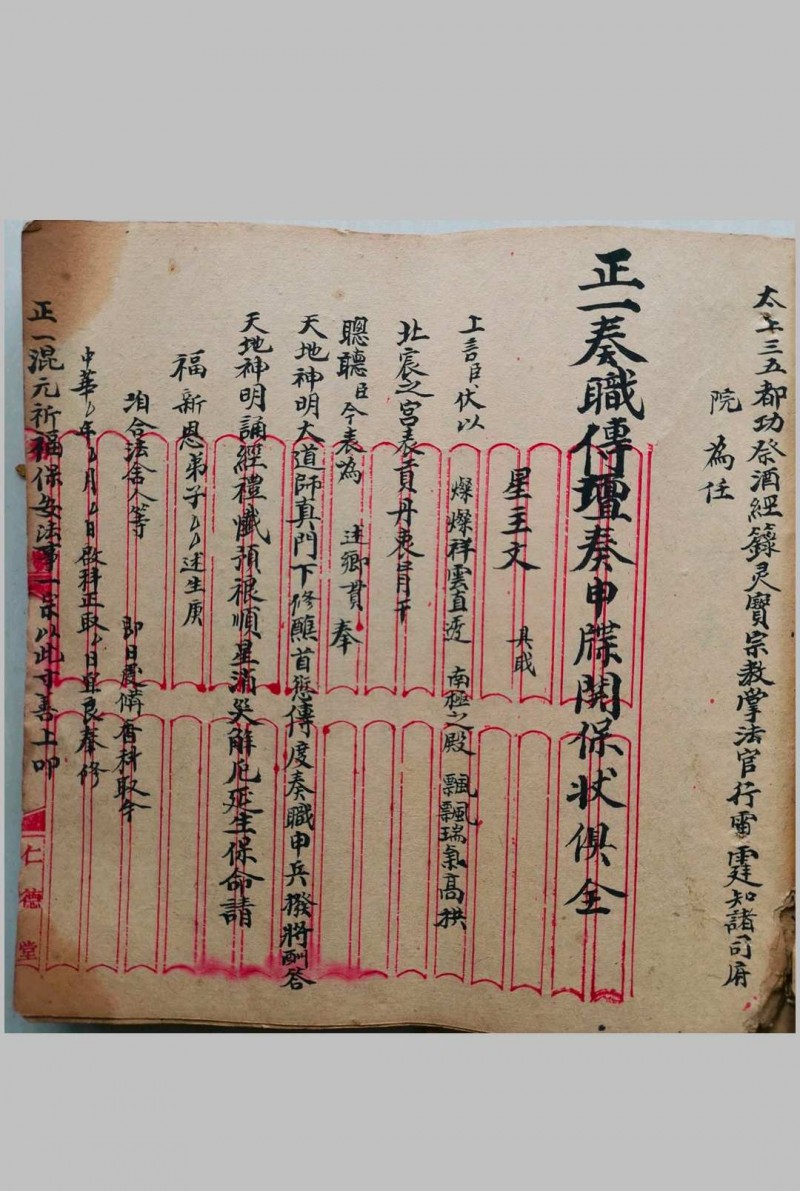 太上三五都功祭酒經籙灵寶宗教掌法官行雷霆知諸司府
院 為任
正一奏職傳壇奏申牒関保状俱全
星主文 具戝
上言臣伏以 燦燦祥雲直透 南極之殿 飄飄瑞氣高拱
北宸之宮表貢丹衷冐干
聰聽臣今表為 述鄉貫 奉
天地神明大道師真門下修醮首愆傳度奏職申兵撥將酧答
天地神明誦經禮懺預禳順星消災解厄延生保命請
福新恩弟子〻述生庚
洎合法舍人等 即日虔備香科取今
中華〻年〻月〻日啟科正取〻日呈良奉修
正一混元祈福保安法事一宗以此寸善上叩
仁德堂